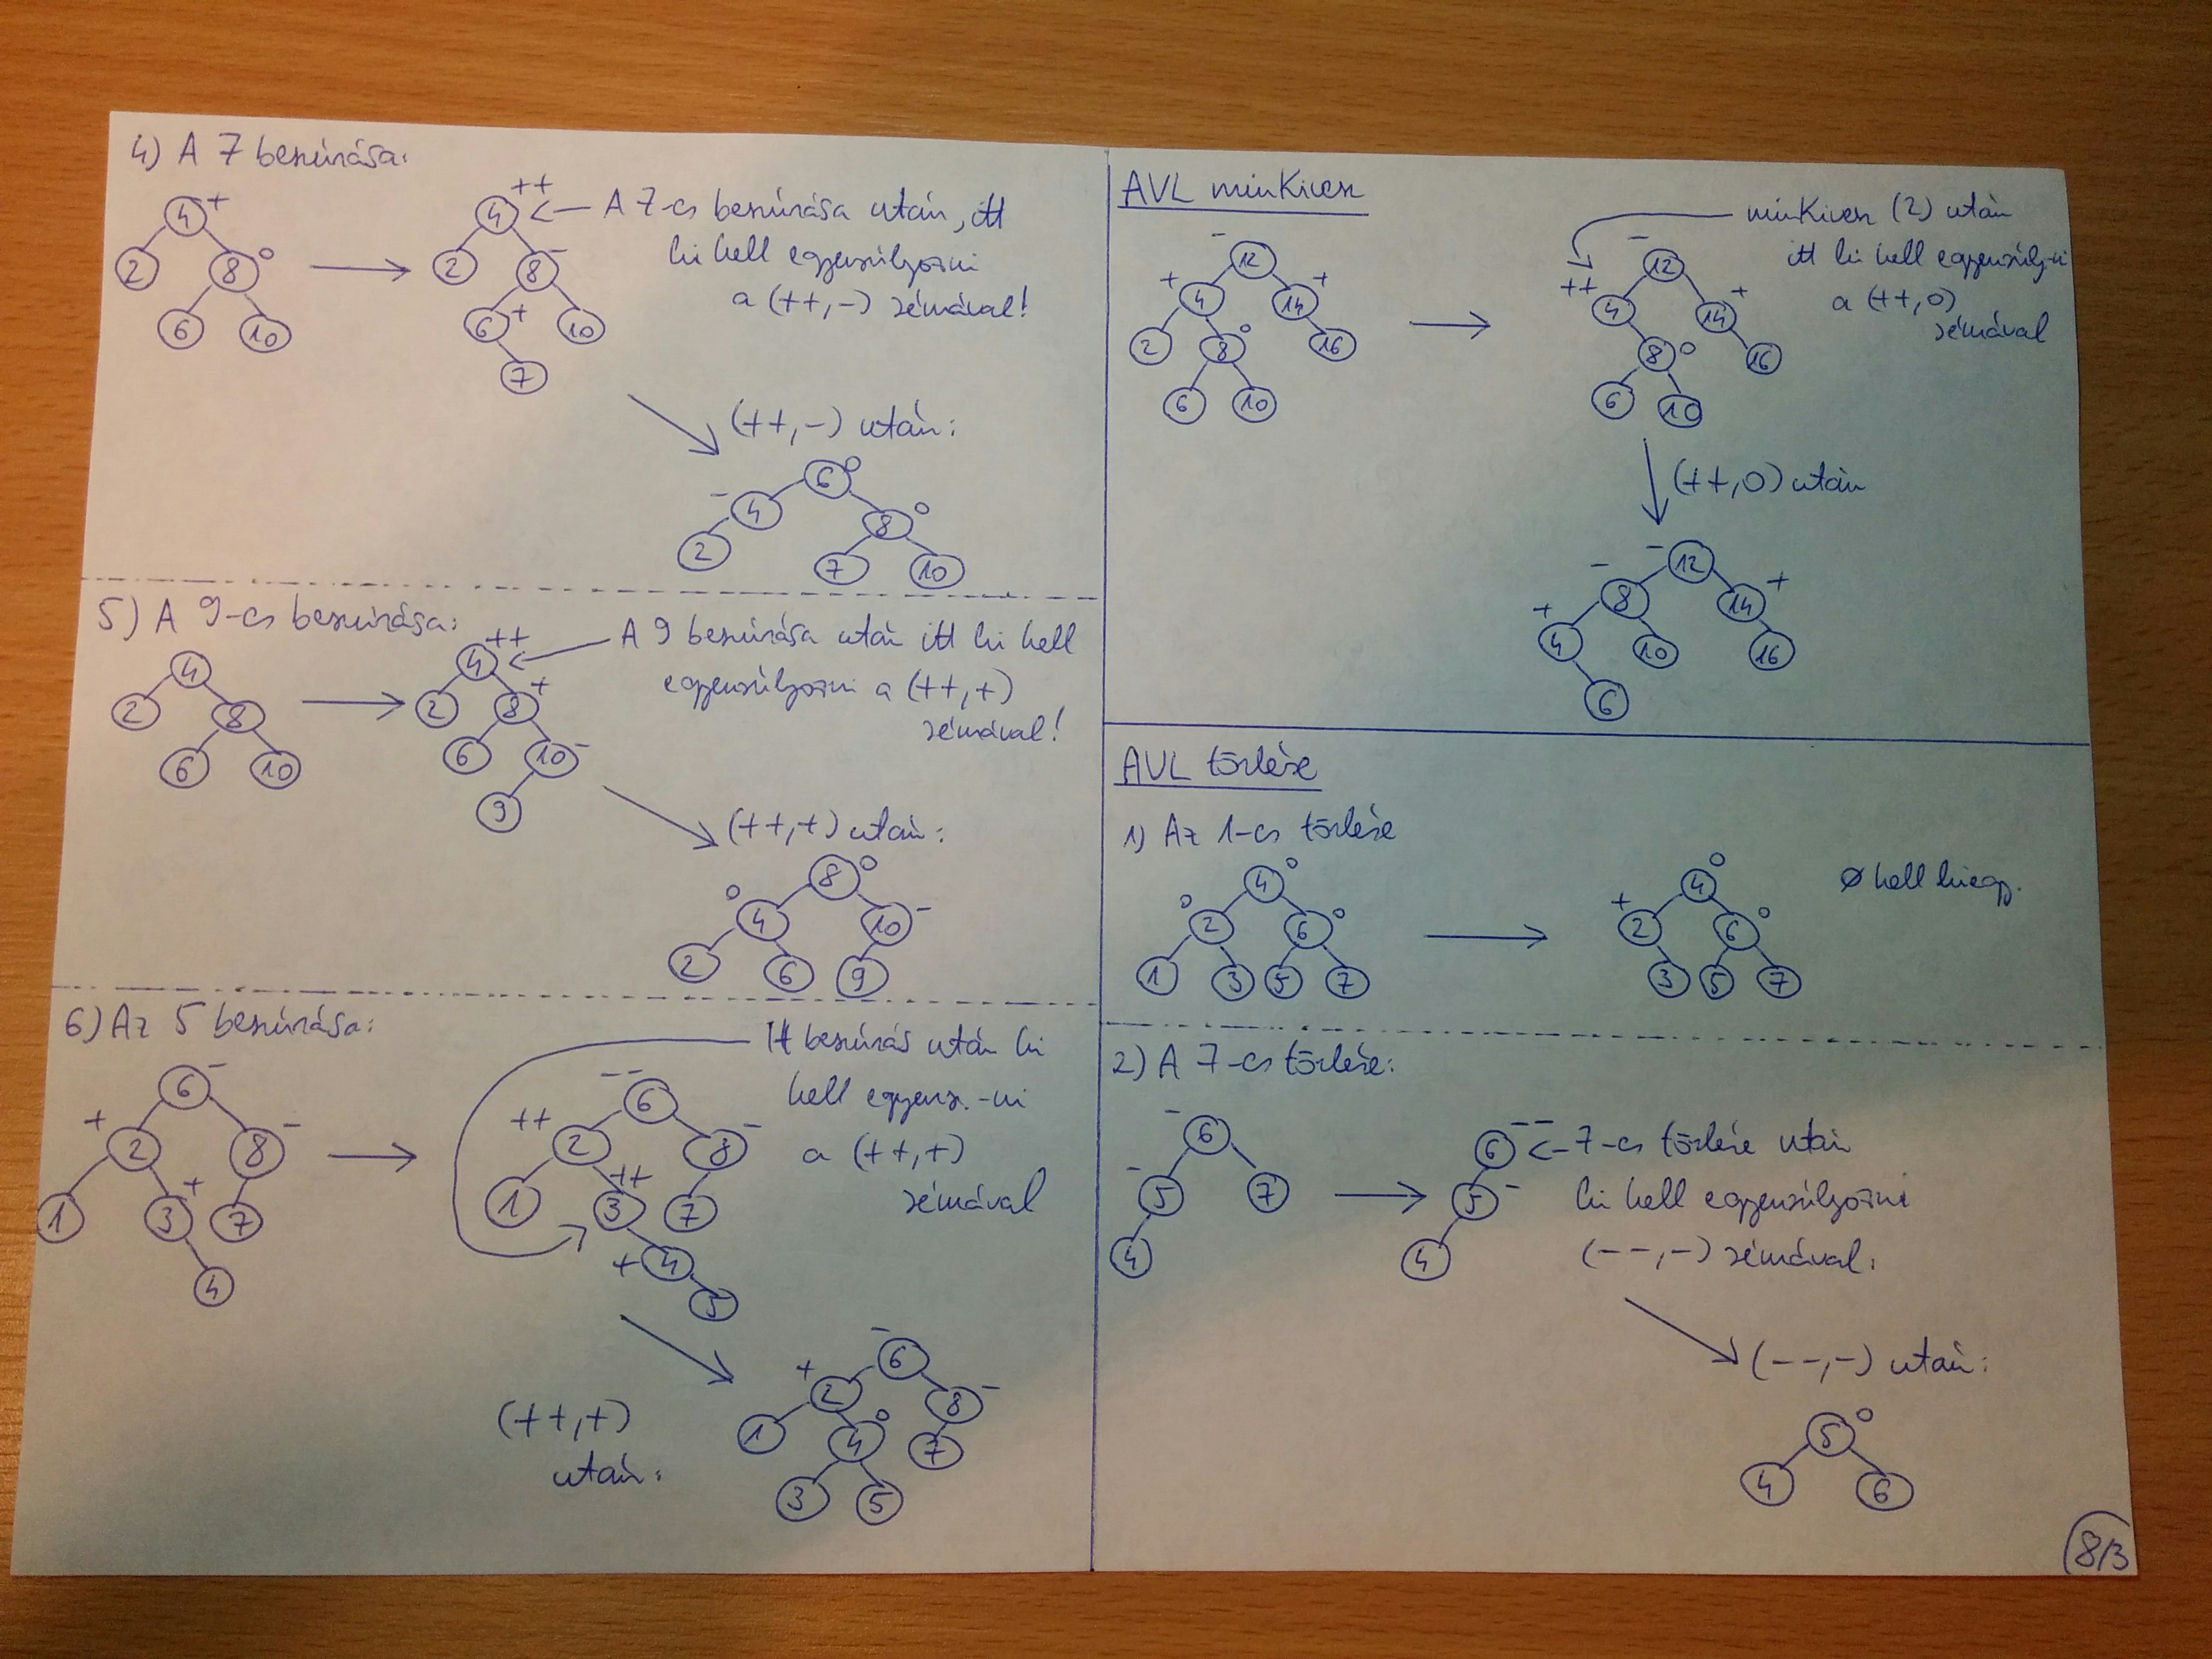 4) A 7 beszúrása:
4 +
2 8 0
6 10
++
4 <— A 7-es beszúrása után, itt
2 8 -
ki kell egyensúlyozni
6 + 10
a (++,-) sémával!
7
(++,-) után:
6 0
- 4 8 0
2 7 10
5) A 9-es beszúrása:
4
2 8
6 10
++
4 <— A 9 beszúrása után itt ki kell
2 8 +
egyensúlyozni a (++,+)
6 10 -
sémával!
9
(++,+) után:
8 0
0 4 10 -
2 6 9
6) Az 5 beszúrása:
6 -
+ 2 8 -
1 3 + 7
4
Itt beszúrás után ki
kell egyens.-ni
a (++,+)
sémával
-- 6
++ 2 8 -
1 ++ 3 7
+ 4
5
(++,+)
után:
- 6
+ 2 8 -
1 4 0 7
3 5
AVL minKivesz
- 12
+ 4 14 +
2 8 0 16
6 10
minKivesz (2) után
itt ki kell egyensúly-ni
a (++,0)
sémával
- 12
++ 4 14 +
8 0 16
6 10
(++,0) után
- 12
- 8 14 +
+ 4 10 16
6
AVL törlése
1) Az 1-es törlése
4 0
0 2 6 0
1 3 5 7
4 0
+ 2 6 0
3 5 7
Ø kell kieg.
2) A 7-es törlése:
- 6
- 5 7
4
6 -- <- 7-es törlése után
5 - ki kell egyensúlyozni
4 (--,-) sémával:
(--,-) után:
5 0
4 6
8/3